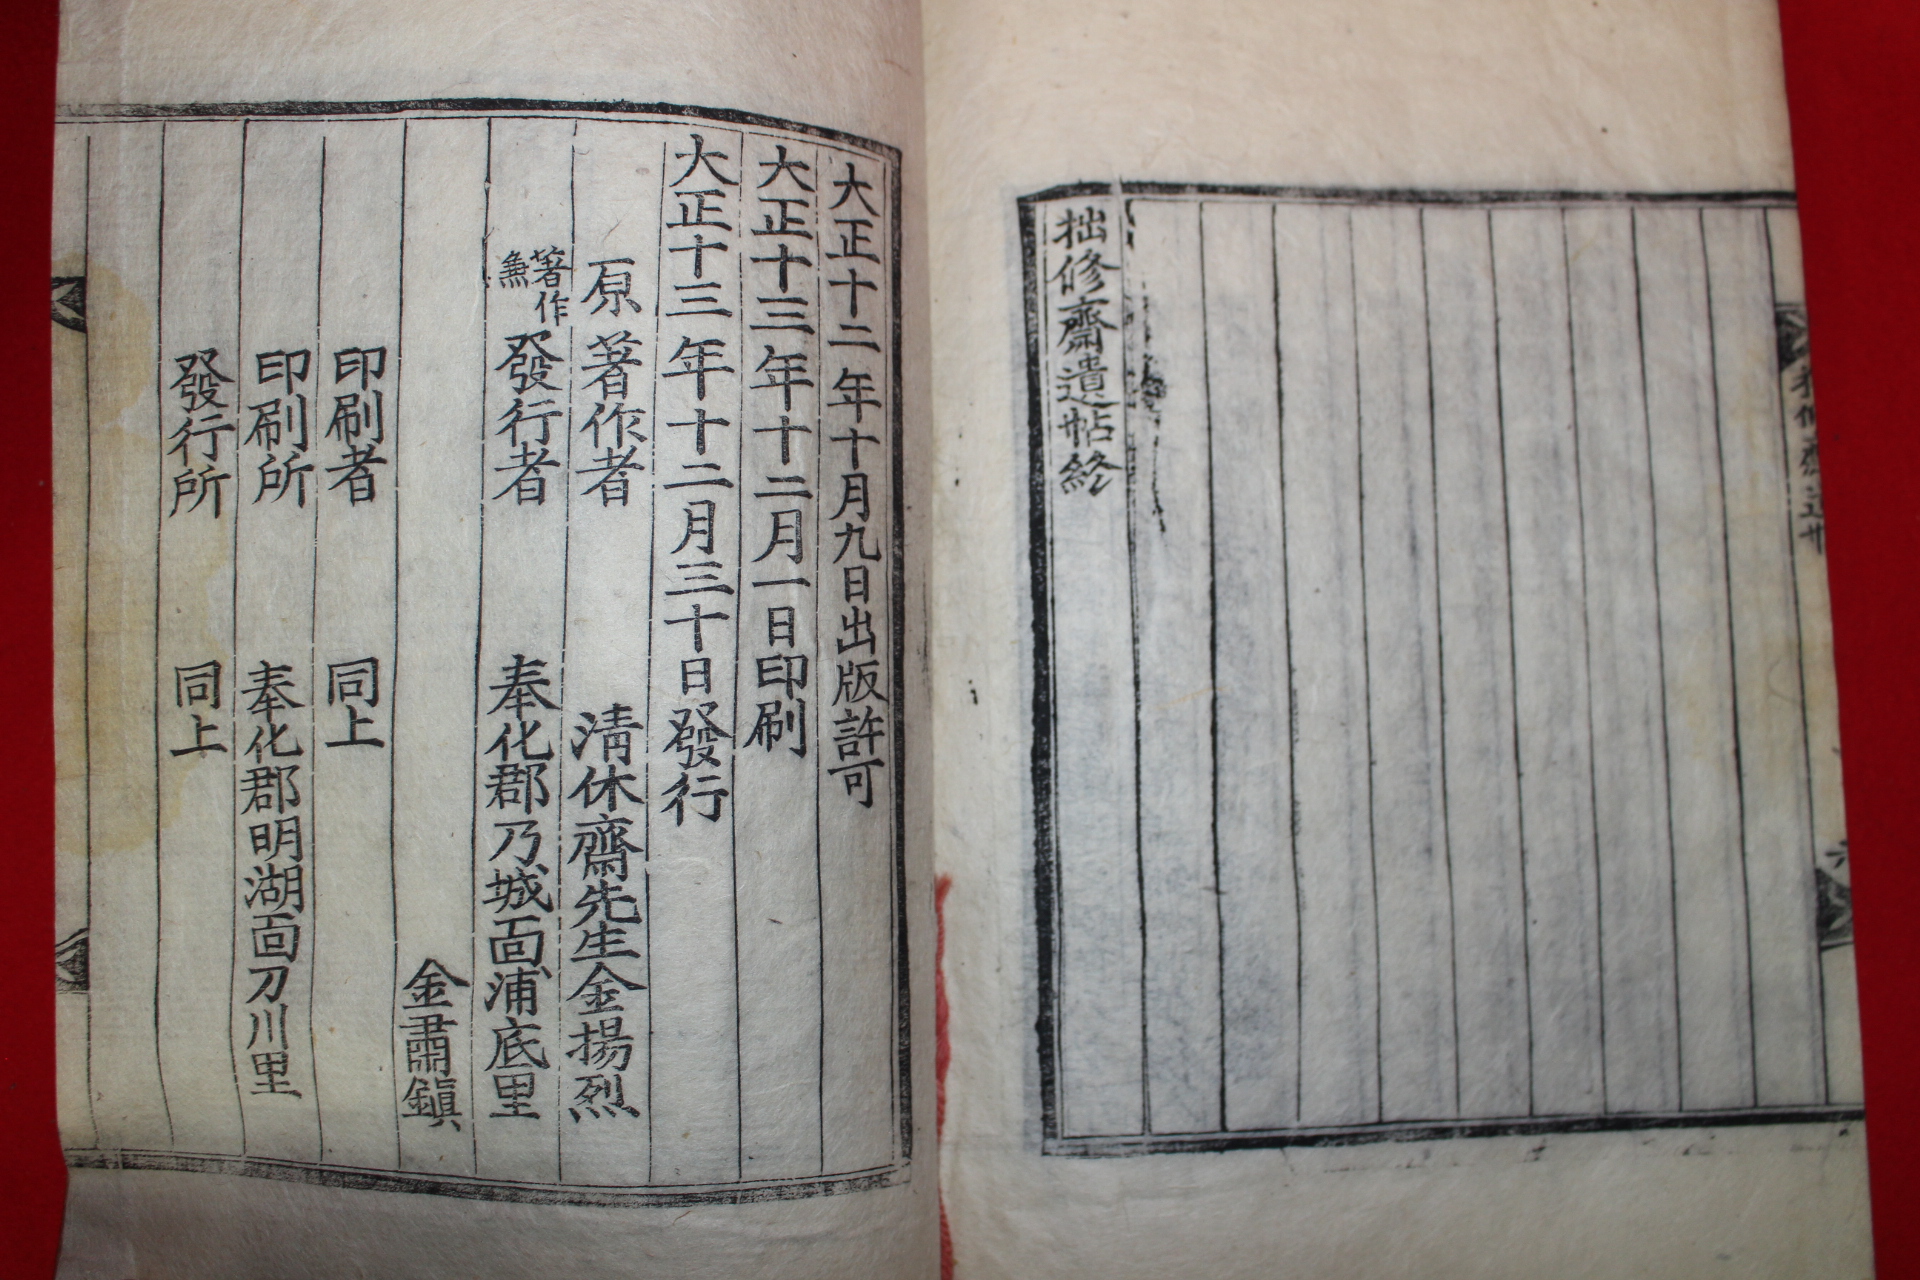 拙修齋遺帖終
大正十二年十月九日出版許可
大正十三年十二月一日印刷
大正十三年十二月三十日發行
原著作者 清休齋先生金揚烈
著作兼發行者 奉化郡乃城面浦底里
金肅鎭
印刷者 同上
印刷所 奉化郡明湖面刀川里
發行所 同上